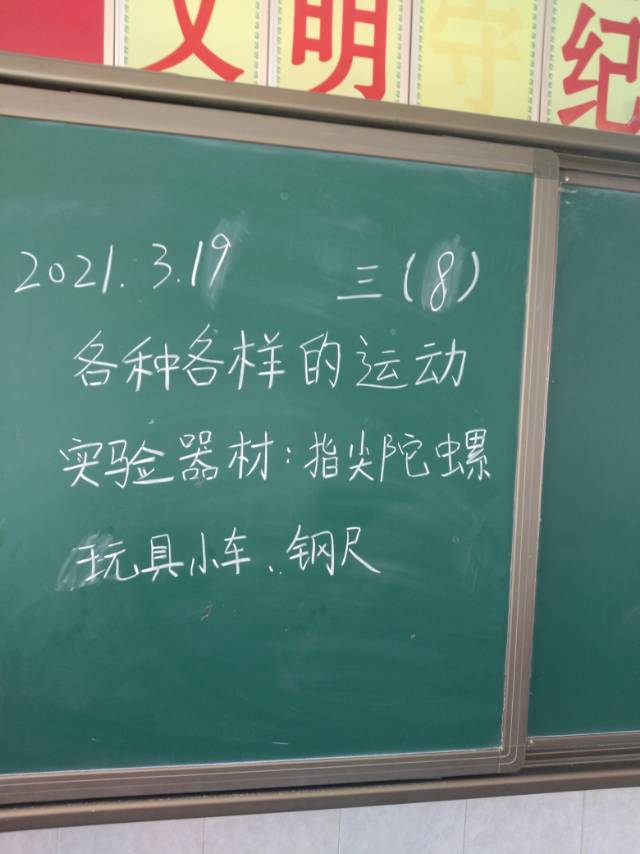 文明守纪
2021.3.19 三(8)
各种各样的运动
实验器材:指尖陀螺
玩具小车、钢尺